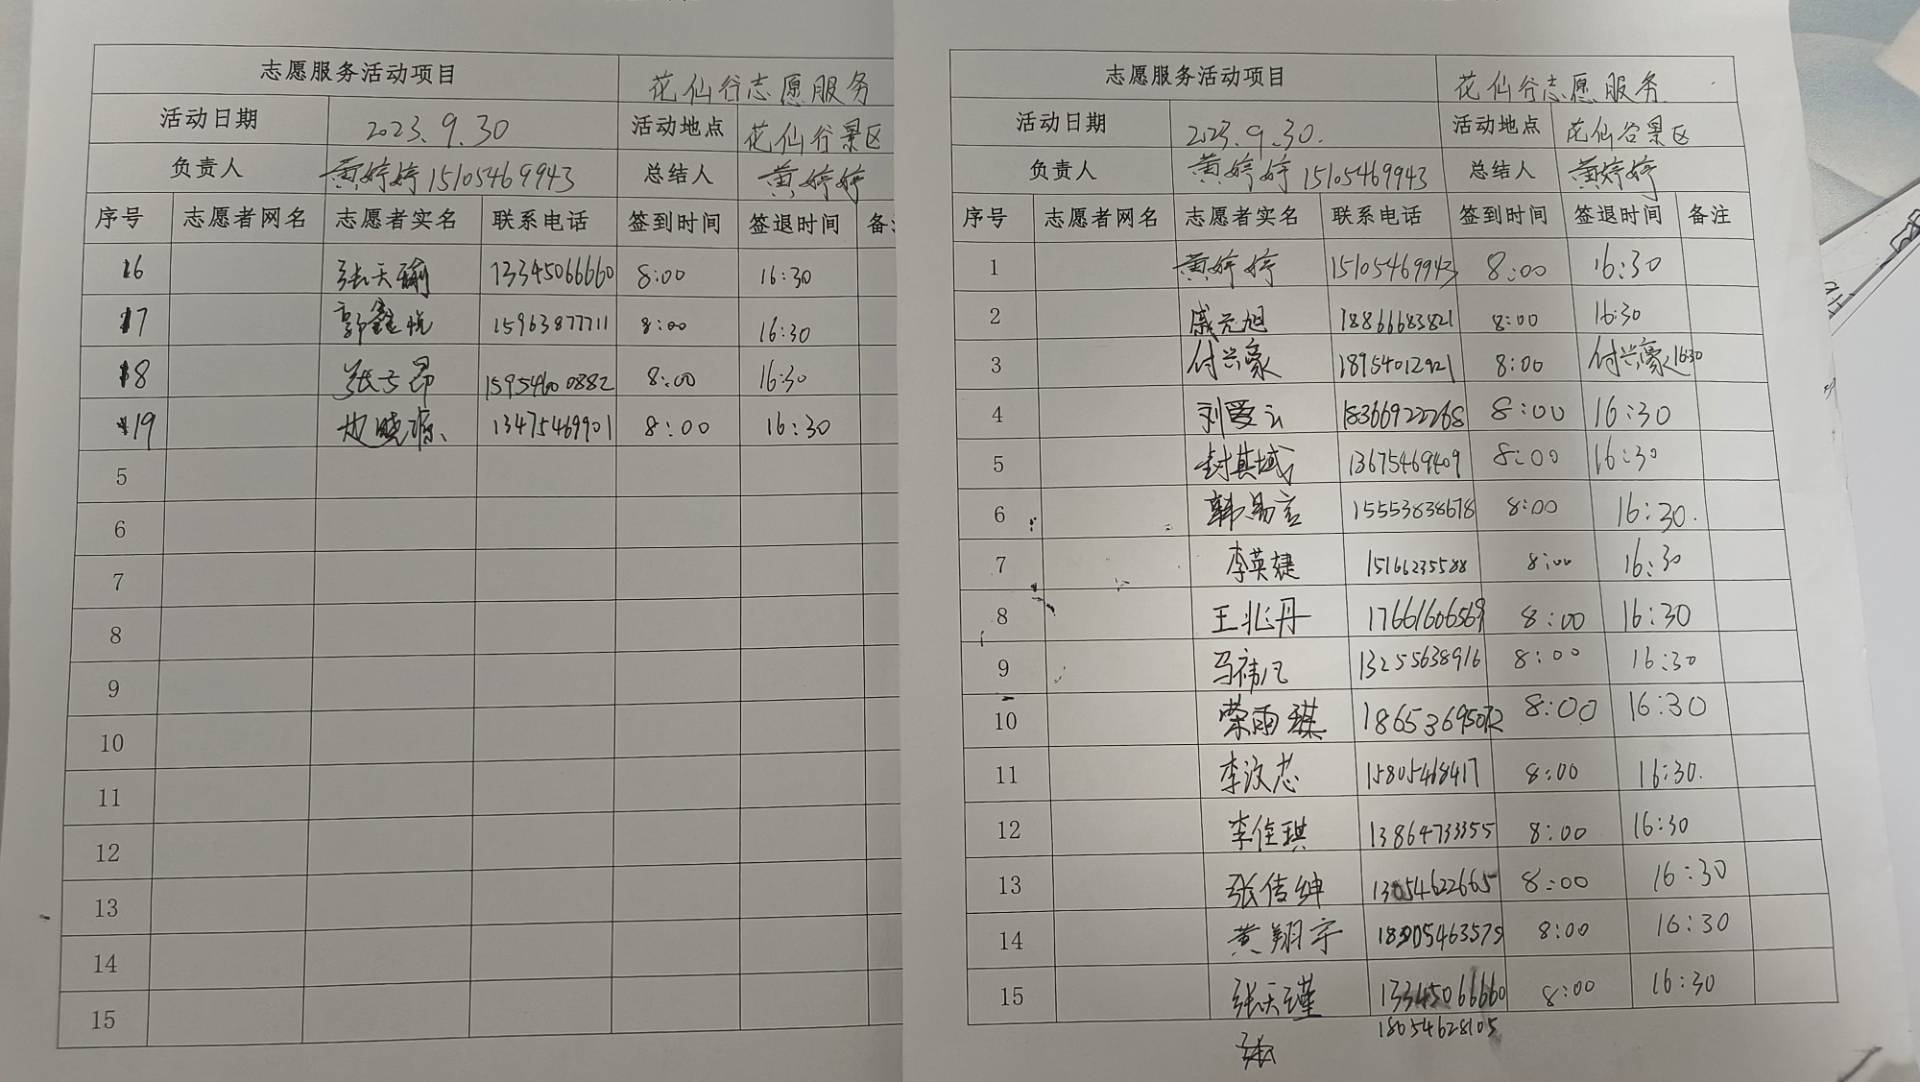 志愿服务活动项目 花仙谷志愿服务
活动日期 2023.9.30 活动地点 花仙谷景区
负责人 黄婷婷 15105469943 总结人 黄婷婷
序号 志愿者网名 志愿者实名 联系电话 签到时间 签退时间 备注
16 张天瑜 13345066660 8:00 16:30
17 郭鑫悦 15963877711 8:00 16:30
18 张子昂 15954600882 8:00 16:30
19 13475469901 8:00 16:30
5
6
7
8
9
10
11
12
13
14
15
志愿服务活动项目 花仙谷志愿服务
活动日期 2023.9.30. 活动地点 花仙谷景区
负责人 黄婷婷 15105469943 总结人 黄婷婷
序号 志愿者网名 志愿者实名 联系电话 签到时间 签退时间 备注
1 黄婷婷 15105469943 8:00 16:30
2 戚元旭 18866683821 8:00 16:30
3 付兴豪 18954012921 8:00 付兴豪 16:30
4 刘爱云 18366922268 8:00 16:30
5 封其域 13675469409 8:00 16:30
6 韩易言 15553838678 8:00 16:30.
7 李英婕 15166235588 8:00 16:30
8 王兆丹 17661606569 8:00 16:30
9 马祎凡 13255638916 8:00 16:30
10 荣雨琪 8:00 16:30
11 李汶芯 15805468417 8:00 16:30.
12 李佳琪 13864733355 8:00 16:30
13 张传绅 13054622665 8:00 16:30
14 黄翔宇 8:00 16:30
15 张天瑾 13345066660 8:00 16:30
张 18054628105